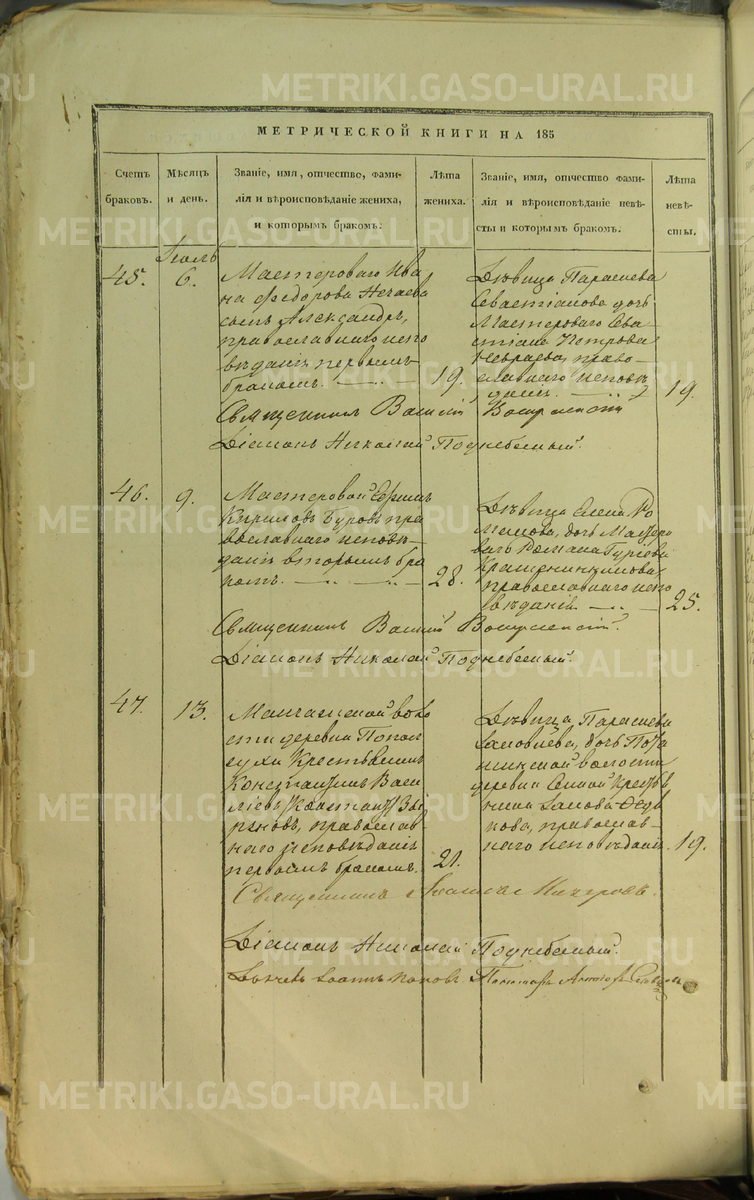 METRIKI.GASO-URAL.RU
МЕТРИЧЕСКОЙ КНИГИ НА 185
Счетъ браковъ.
Мѣсяцъ и день.
Званіе, имя, отчество, фамилія и вѣроисповѣданіе жениха, и которымъ бракомъ.
Лѣта жениха.
Званіе, имя, отчество фамилія и вѣроисповѣданіе невѣсты и которымъ бракомъ.
Лѣта невѣсты.
Іюль
45.
6.
Мастероваго Ива
на Федорова Нечаева
сынъ Александръ,
православнаго испо
вѣданія, первымъ
бракомъ.
19.
Дѣвица Параскева
Севастіанова дочь
Мастероваго Сева
стіана Петрова
право
славнаго исповѣ
данія.
19.
Священникъ Василій
Діаконъ Николай Поднебесный.
46.
9.
Мастеровой Ефимъ
Кириловъ Буровъ пра
вославнаго исповѣ
данія вторымъ бра
комъ.
28.
Дѣвица Елена Ро
манова, дочь Мастеро
ваго Романа Гурьева
Крашенинникова,
православнаго испо
вѣданія
25.
Священникъ Василій
Діаконъ Николай Поднебесный.
47.
13.
воло
сти деревни
Крестьянинъ
Константинъ Васи
льевъ
православ
наго исповѣданія
первымъ бракомъ.
21.
Дѣвица Параскева
Іаковлева, дочь Пота
шинской волости
деревни
Іакова
православ
наго исповѣданія
19.
Священникъ
Діаконъ Николай Поднебесный.
Іоаннъ Поповъ
Пономарь